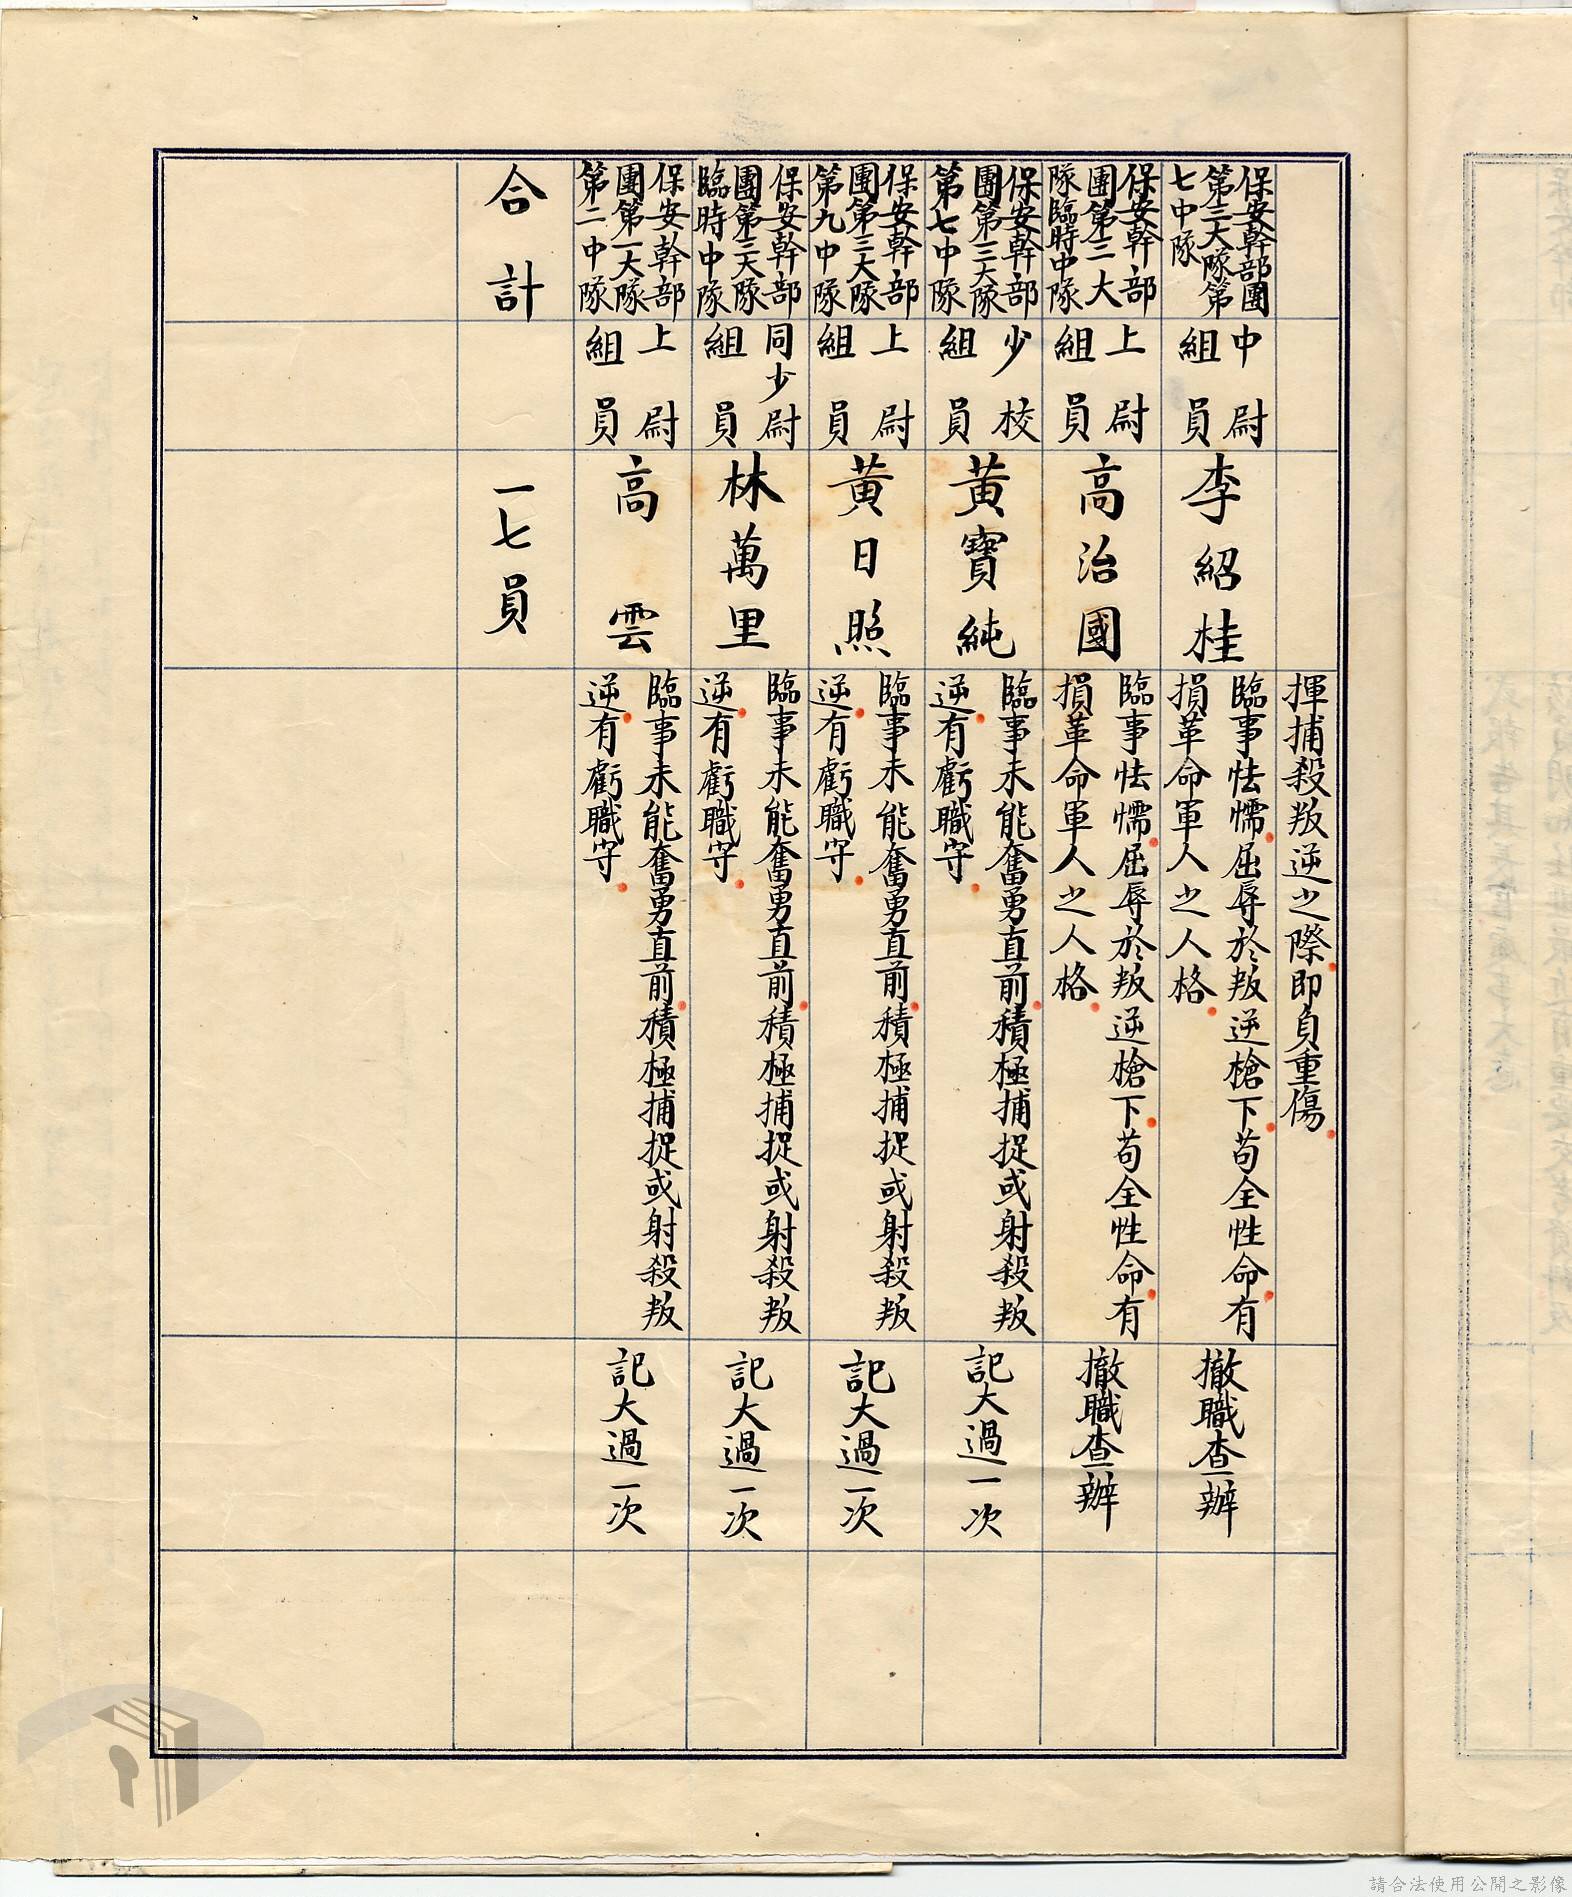 揮捕殺叛逆之際即負重傷
保安幹部團
第三大隊第
七中隊
中尉
組員
李紹桂
臨事怯懦屈辱於叛逆槍下苟全性命有
損革命軍人之人格
撤職查辦
保安幹部
團第三大
隊臨時中隊
上尉
組員
高治國
臨事怯懦屈辱於叛逆槍下苟全性命有
損革命軍人之人格
撤職查辦
保安幹部
團第三大隊
第七中隊
少校
組員
黃寶純
臨事未能奮勇直前積極捕捉或射殺叛
逆有虧職守
記大過一次
保安幹部
團第三大隊
第九中隊
上尉
組員
黃日照
臨事未能奮勇直前積極捕捉或射殺叛
逆有虧職守
記大過一次
保安幹部
團第三大隊
臨時中隊
同少尉
組員
林萬里
臨事未能奮勇直前積極捕捉或射殺叛
逆有虧職守
記大過一次
保安幹部
團第一大隊
第二中隊
上尉
組員
高雲
臨事未能奮勇直前積極捕捉或射殺叛
逆有虧職守
記大過一次
合計
一七員
請合法使用公開之影像